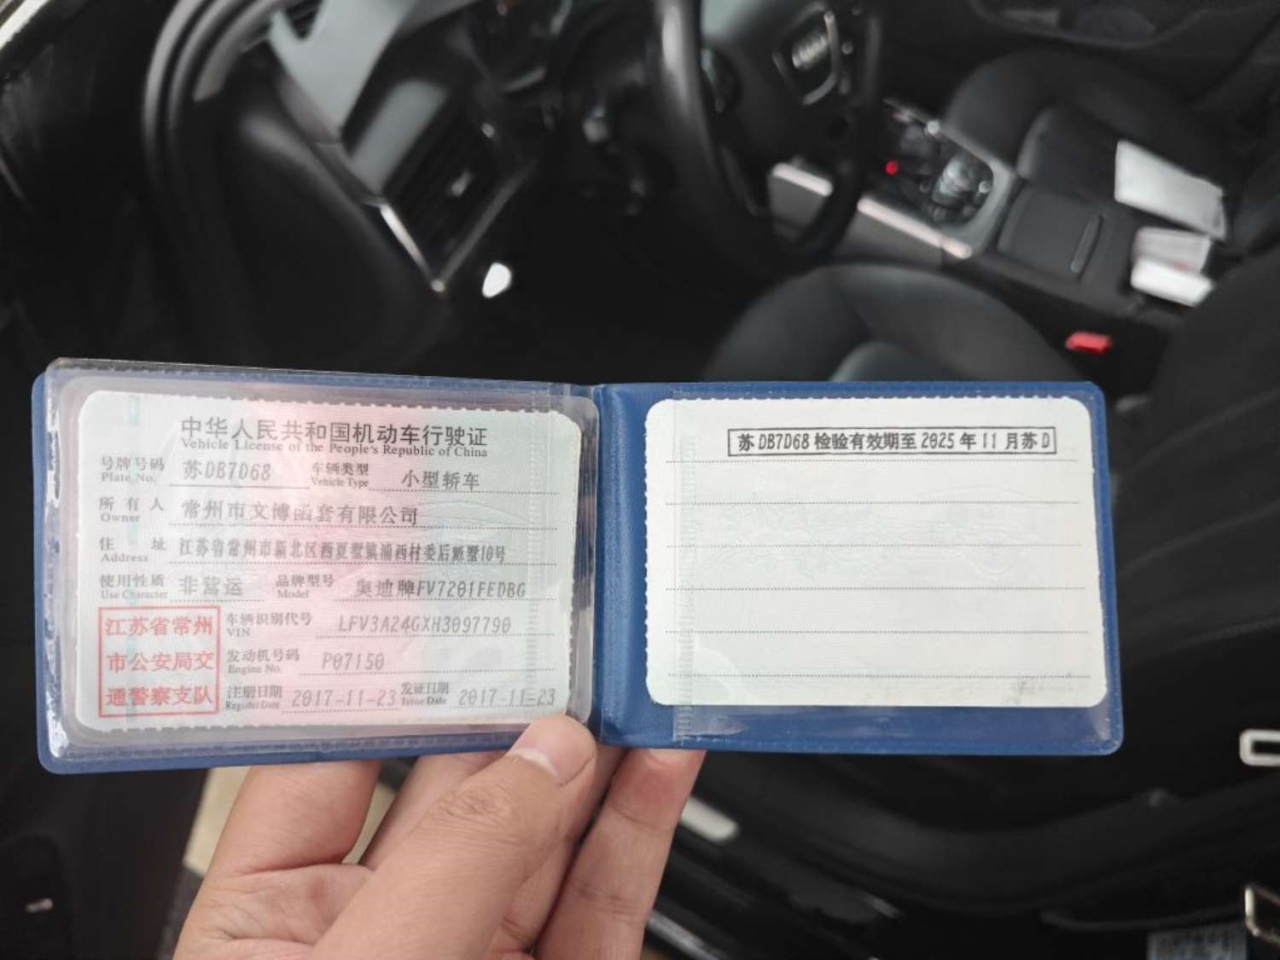 中华人民共和国机动车行驶证
Vehicle License of the People's Republic of China
号牌号码 苏DB7D68 车辆类型 小型轿车
Plate No. Vehicle Type
所有人 常州市文博函套有限公司
Owner
住址 江苏省常州市新北区西夏墅镇浦西村委后姚墅10号
Address
使用性质 非营运 品牌型号 奥迪牌FV7201FEDBG
Use Character Model
江苏省常州
市公安局交
通警察支队
车辆识别代号 LFV3A24GXH3097790
VIN
发动机号码 P07150
Engine No.
注册日期 2017-11-23 发证日期 2017-11-23
Register Date Issue Date
苏DB7D68 检验有效期至 2025 年 11 月苏D